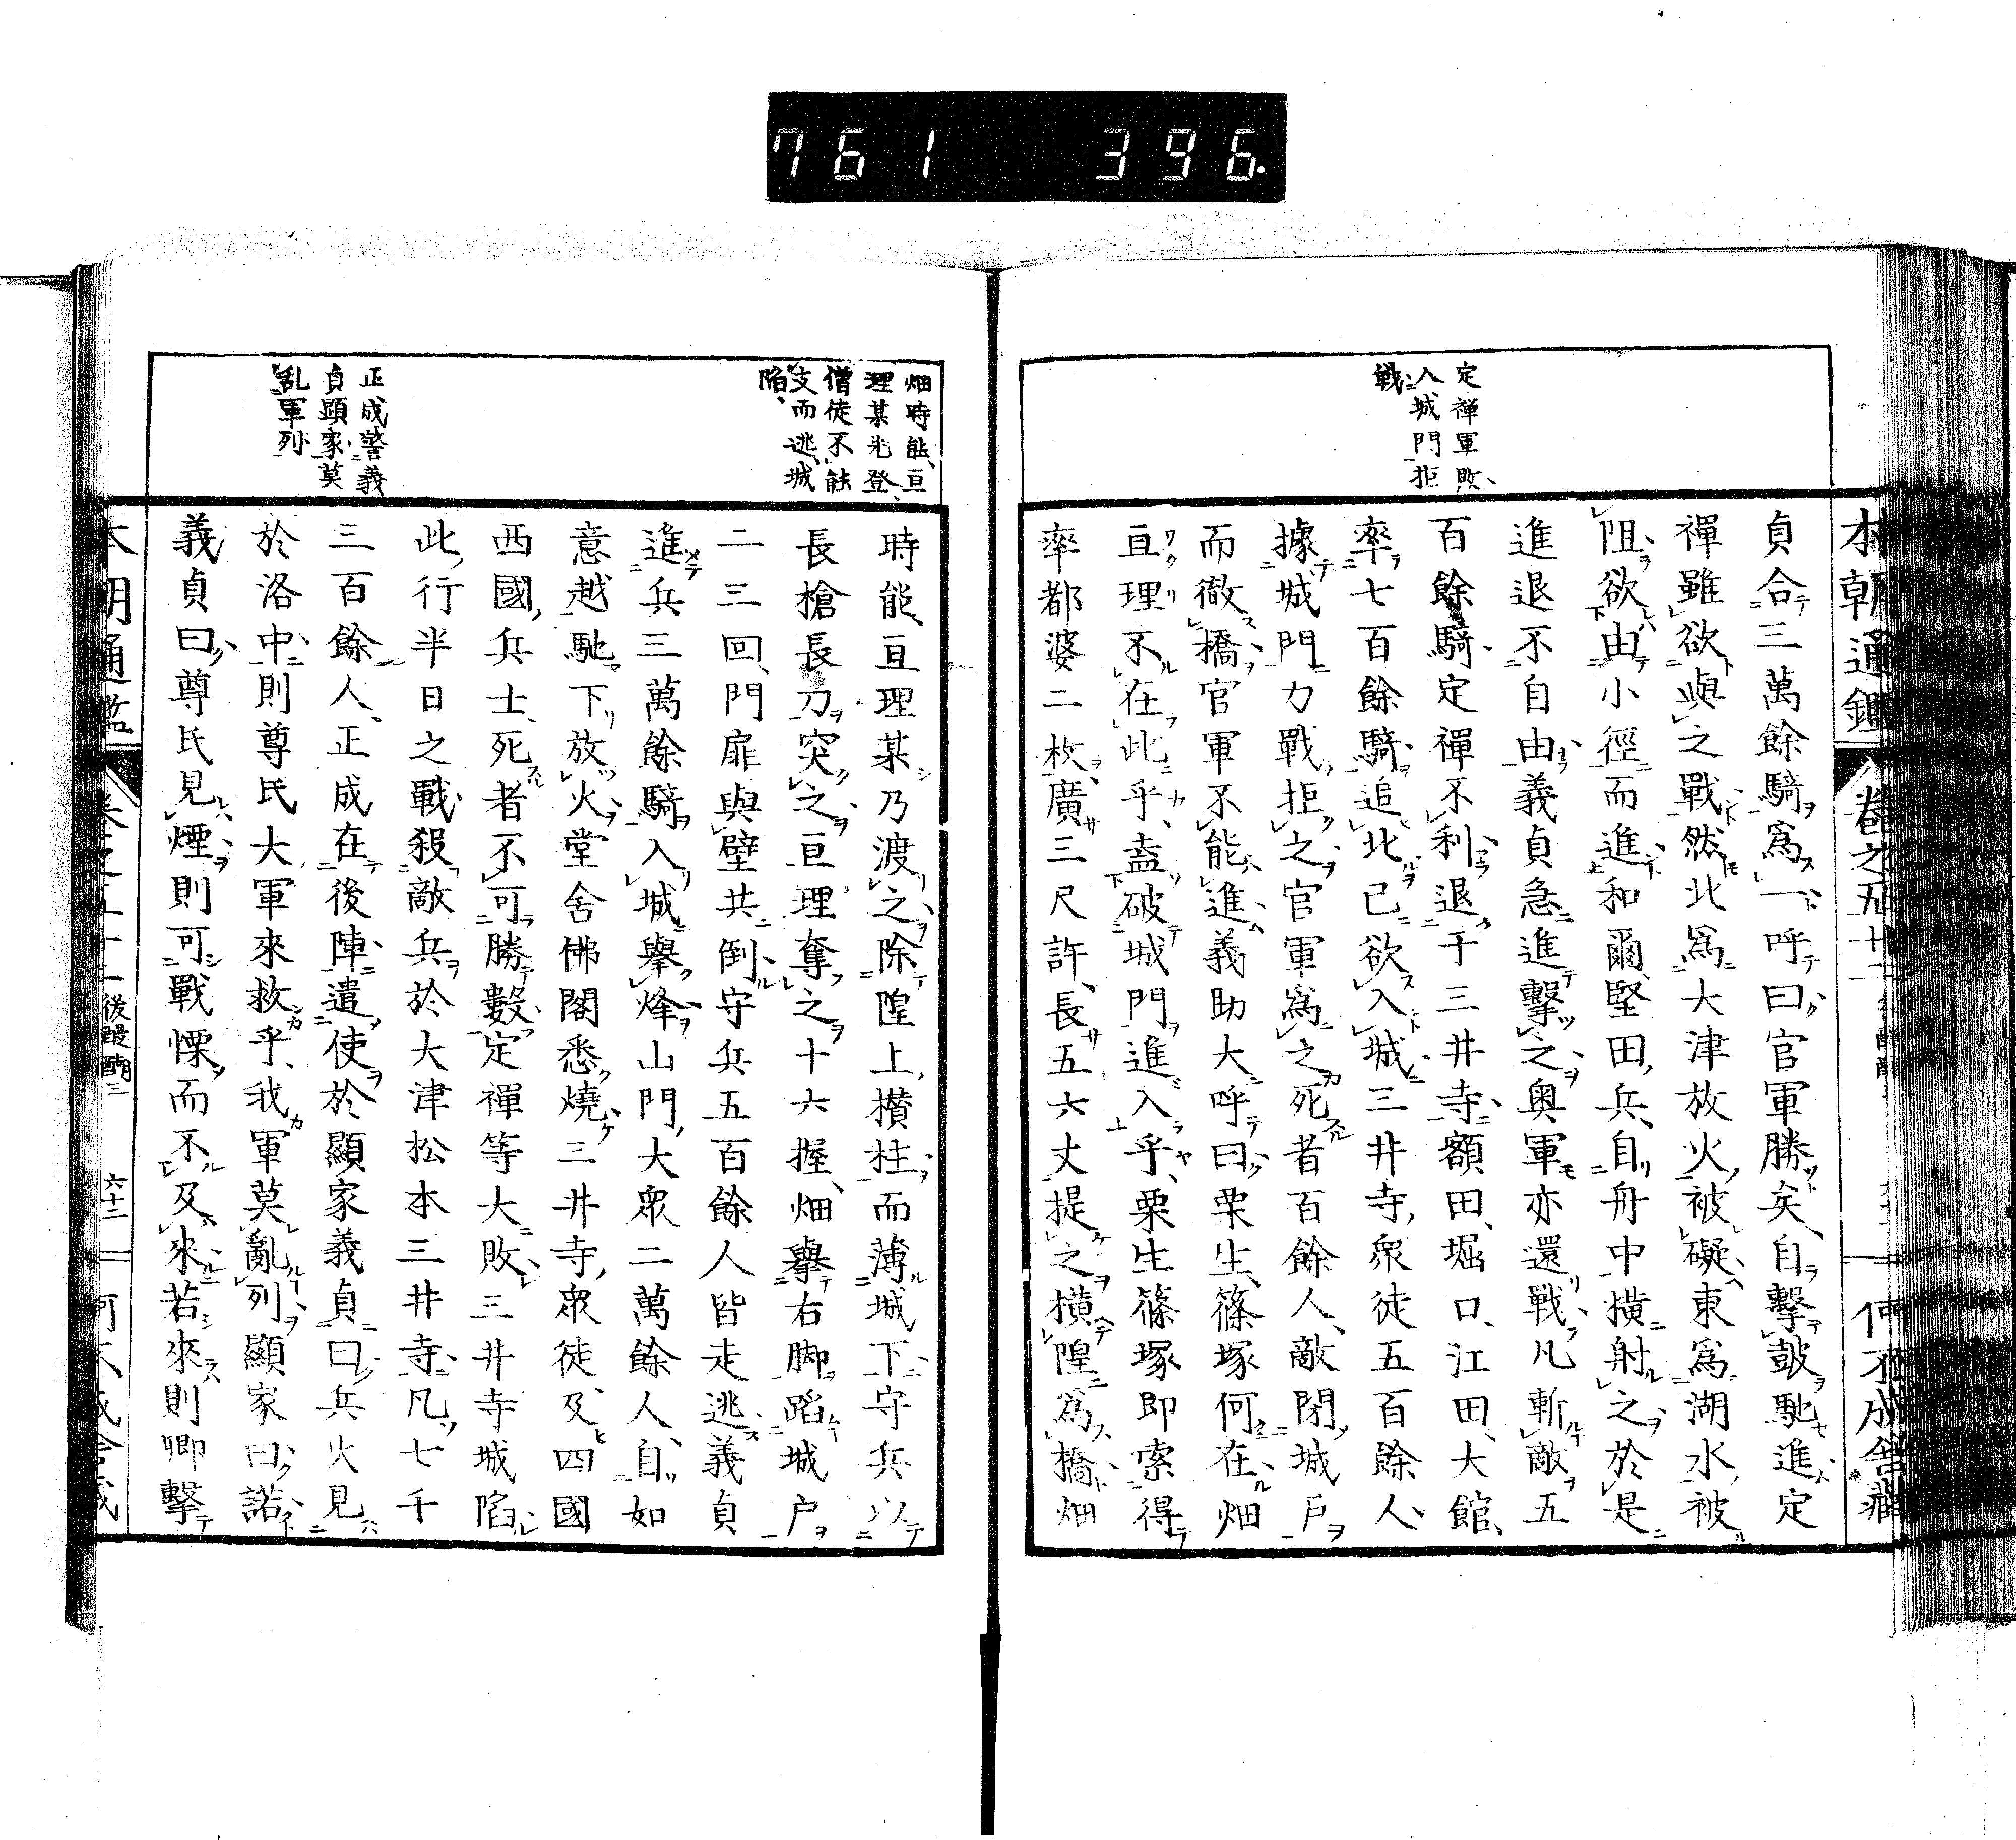 761 396.
本朝通鑑 卷之五十二
定禅軍敗
入城門拒
戰
貞合三萬餘騎爲一呼曰官軍勝矣自擊鼓馳進定
禪雖欲與之戰然北爲大津放火被礙東爲湖水被
阻欲由小徑而進和爾堅田兵自舟中横射之於是
進退不自由義貞急進擊之奥軍亦還戰凡斬敵五
百餘騎定禪不利退于三井寺額田堀口江田大館
率七百餘騎追北已欲入城三井寺衆徒五百餘人
據城門力戰拒之官軍爲之死者百餘人敵閉城戸
而徹橋官軍不能進義助大呼曰栗生篠塚何在畑
亘理不在此乎盍破城門進入乎栗生篠塚即索得
率都婆二枚廣三尺許長五六丈提之横隍爲橋畑
畑時能亘
理某先登
僧徒不能
支而逃城
陷
正成警義
貞顕家莫
乱軍列
時能亘理某乃渡之除隍上攅柱而薄城下守兵以
長槍長刀突之亘理奪之十六握畑擧右脚蹈城戸
二三回門扉與壁共倒守兵五百餘人皆走逃義貞
進兵三萬餘騎入城擧烽山門大衆二萬餘人自如
意越馳下放火堂舍佛閣悉燒三井寺衆徒及四國
西國兵士死者不可勝數定禪等大敗三井寺城陷
此行半日之戰殺敵兵於大津松本三井寺凡七千
三百餘人正成在後陣遣使於顯家義貞曰兵火見
於洛中則尊氏大軍來救乎我軍莫亂列顯家曰諾
義貞曰尊氏見煙則可戰慄而不及來若來則卿擊
後醍醐三 六十二